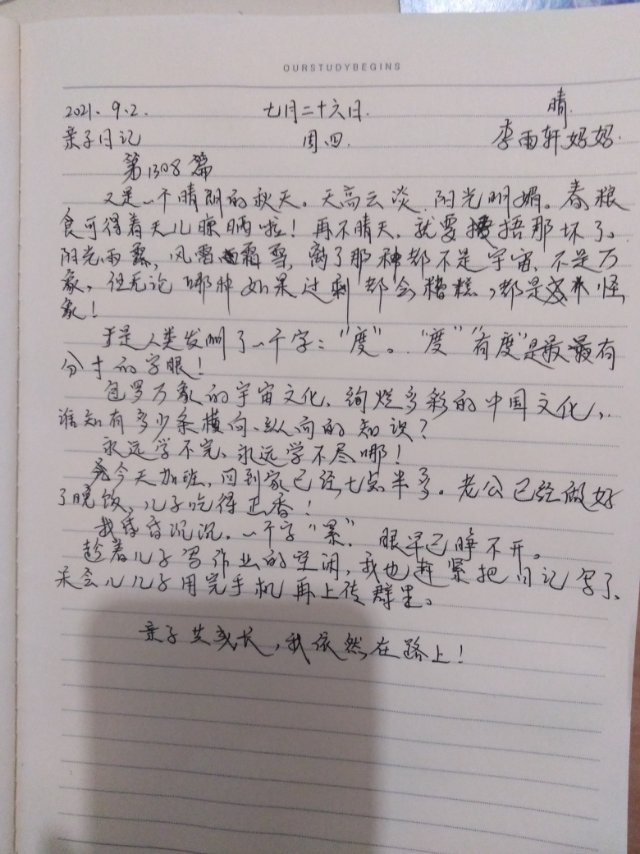 OURSTUDYBEGINS
2021.9.2. 七月二十六日. 晴.
亲子日记 周四. 李雨轩妈妈.
第1308篇
又是一个晴朗的秋天。天高云淡,阳光明媚。春粮
食可得着天儿晾晒啦!再不晴天,就要捂那坏了。
阳光雨露,风霜雪,离了那种都不是宇宙,不是万
象。但无论哪种如果过剩都会糟糕,都是怪
象!
于是人类发明了一个字:"度"。"度""有度"是最最有
分寸的字眼!
包罗万象的宇宙文化,绚烂多彩的中国文化,
谁知有多少条横向、纵向的知识?
永远学不完,永远学不尽哪!
今天加班,回到家已经七点半多。老公已经做好
了晚饭,儿子吃得正香!
我昏昏沉沉,一个字"累",眼早已睁不开。
趁着儿子写作业的空闲,我也赶紧把日记写了、
呆会儿儿子用完手机再上传群里。
亲子共成长,我依然在路上!